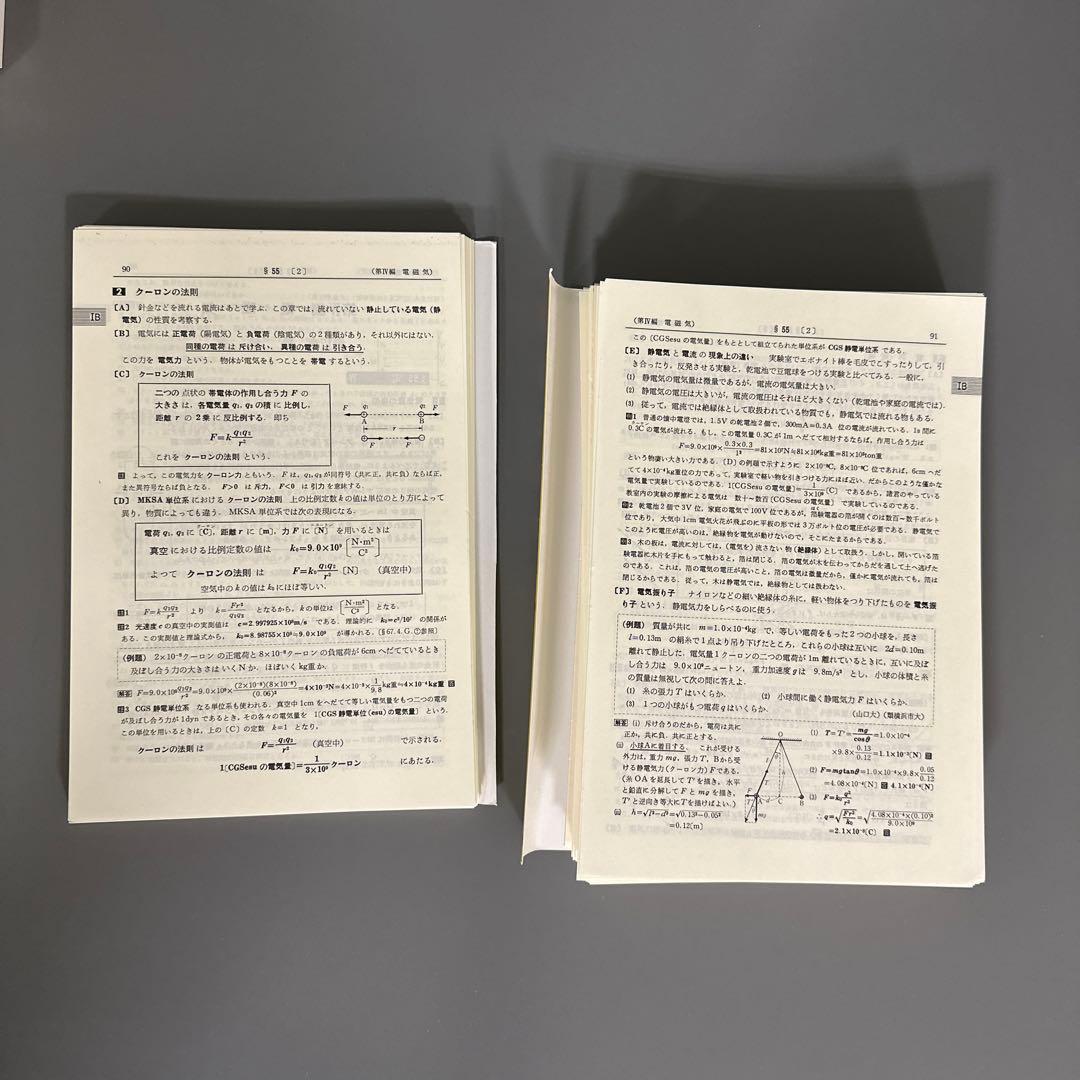 90 §55 〔2〕 (第Ⅳ編 電磁気)
2 クーロンの法則
ⅠB
〔A〕 針金などを流れる電流はあとで学ぶ. この章では, 流れていない 静止している電気 (静
電気) の性質を考察する.
〔B〕 電気には 正電荷 (陽電気) と 負電荷 (陰電気) の2種類があり, それ以外にはない.
同種の電荷は 斥け合い, 異種の電荷は 引き合う.
この力を 電気力 という. 物体が電気をもつことを 帯電 するという.
〔C〕 クーロンの法則
二つの 点状の 帯電体の作用し合う力 F の
大きさは, 各電気量 q₁, q₂ の積 に 比例し,
距離 r の 2乗 に 反比例する. 即ち
F=k q₁q₂/r²
これを クーロンの法則 という.
F q₁ q₂ F
A B
r
F F
注 よって, この電気力を クーロン力 ともいう. F は, q₁, q₂ が同符号 (共に正, 共に負) ならば正,
また異符号ならば負となる. F>0 は 斥力, F<0 は 引力 を意味する.
〔D〕 MKSA 単位系 における クーロンの法則 上の比例定数 k の値は単位のとり方によって
異り, 物質によっても 違う. MKSA 単位系では次の表現になる.
電荷 q₁, q₂ に 〔C〕, 距離 r に 〔m〕, 力 F に 〔N〕 を用いるときは
クーロン ニュートン
真空 における 比例定数の値は k₀=9.0×10⁹ [N·m²/C²]
よって クーロンの法則 は F=k₀ q₁q₂/r² 〔N〕 (真空中)
空気中の k の値は k₀ にほぼ等しい.
注1 F=k q₁q₂/r² より k=Fr²/q₁q₂ となるから, k の単位は [N·m²/C²] となる.
注2 光速度 c の真空中の実測値は c=2.997925×10⁸m/s である. 理論的に k₀=c²/10⁷ の関係が
ある. この実測値と理論式から, k₀=8.98755×10⁹≒9.0×10⁹ が導かれる. (§67.4.G.⑦参照)
(例題) 2×10⁻⁸クーロン の正電荷と 8×10⁻⁸クーロンの負電荷が 6cm へだてているとき
及ぼし合う力の大きさは いく N か. ほぼいく kg重か.
解答 F=9.0×10⁹ q₁q₂/r²=9.0×10⁹×(2×10⁻⁸)(8×10⁻⁸)/(0.06)²=4×10⁻³N=4×10⁻³×1/9.8 kg重≒4×10⁻⁴kg重 答
注3 CGS 静電単位系 なる単位系も使われる. 真空中 1cm をへだてて等しい電気量をもつ二つの電荷
が及ぼし合う力が 1dyn であるとき, その各々の電気量を 1〔CGS静電単位(esu)の電気量〕 という.
この単位を用いるときは, 上の〔C〕の定数 k=1 となり,
クーロンの法則 は F=q₁q₂/r² (真空中) で示される.
1〔CGSesu の電気量〕=1/(3×10⁹) クーロン にあたる.
(第Ⅳ編 電磁気) §55 〔2〕 91
この〔CGSesu の電気量〕をもととして組立てられた単位系が CGS 静電単位系 である.
〔E〕 静電気 と 電流 の 現象上の違い 実験室でエボナイト棒を毛皮でこすったりして, 引
き合ったり, 反発させる実験と, 乾電池で豆電球をつける実験と比べてみる. 一般に,
ⅠB
(1) 静電気の電気量は微量であるが, 電流の電気量は大きい.
(2) 静電気の電圧は大きいが, 電流の電圧はそれほど大きくない (乾電池や家庭の電流では).
(3) 従って, 電流では絶縁体として取扱われている物質でも, 静電気では流れる物もある.
注1 普通の懐中電燈では, 1.5V の乾電池 2個で, 300mA=0.3A 位の電流が流れている. 1s 間に
0.3C の電気が流れる. もし, この電気量 0.3C が 1m へだてて相対するならば, 作用し合う力は
F=9.0×10⁹×0.3×0.3/1²=81×10⁷N≒81×10⁶kg重=81×10³ton重
という物凄い大きい力である. 〔D〕の例題で示すように 2×10⁻⁸C, 8×10⁻⁸C 位であれば, 6cm へだ
てて 4×10⁻⁴kg重位の力であって, 実験室で軽い物を引きつける力にほぼ近い. だからこのような僅かな
電気量で実験しているのである. 1〔CGSesu の電気量〕=1/(3×10⁹)〔C〕 であるから, 諸君のやっている
教室内の実験の摩擦による電気は 数十～数百〔CGSesu の電気量〕 で実験しているのである.
注2 乾電池 2個で 3V 位, 家庭の電気で 100V 位であるが, 箔験電器の箔が開くのは数百～数千ボルト
位であり, 大気中 1cm 電気火花が飛ぶのに平板の形では 3万ボルト位の電圧が必要である. 静電気で
このように電圧が高いのは, 絶縁物を電気が動けないので, そこにたまるからである.
注3 木の板は, 電流に対しては, (電気を) 流さない 物 (絶縁体) として取扱う. しかし, 開いている箔
験電器に木片を手にもって触わると, 箔は閉じる. 箔の電気が木を伝わってからだを通して土へ逃げた
のである. これは, 箔の電気の電圧が高いこと, 箔の電気は微量だから, 僅かに電気が流れても, 箔は
閉じるからである. 従って, 木は静電気では, 絶縁物としては扱わない.
〔F〕 電気振り子 ナイロンなどの細い絶縁体の糸に, 軽い物体をつり下げたものを 電気振
り子 という. 静電気力をしらべるのに使う.
(例題) 質量が共に m=1.0×10⁻⁴kg で, 等しい電荷をもった 2つの小球を, 長さ
l=0.13m の絹糸で 1点より吊り下げたところ, これらの小球は互いに 2d=0.10m
離れて静止した. 電気量 1クーロンの二つの電荷が 1m 離れているときに, 互いに及ぼ
し合う力は 9.0×10⁹ニュートン, 重力加速度 g は 9.8m/s² とし, 小球の体積と糸
の質量は無視して次の問に答えよ.
(1) 糸の張力 T はいくらか. (2) 小球間に働く静電気力 F はいくらか.
(3) 1つの小球がもつ電荷 q はいくらか. (山口大) (類横浜市大)
解答 (i) 斥け合うのだから, 電荷は共に
正か, 共に負. 共に正とする.
(ii) 小球Aに着目する. これが受ける
外力は, 重力 mg, 張力 T, B から受
ける静電気力 (クーロン力) F である.
(糸 OA を延長して T′ を描き, 水平
と鉛直に分解して F と mg を描き,
T′ と逆向き等大に T を描けばよい.)
(iii) h=√l²−d²=√0.13²−0.05²
=0.12〔m〕
O
θ
l
T
h
F A d C B
T′ mg
(1) T=T′=mg/cosθ=1.0×10⁻⁴
×9.8×0.13/0.12=1.1×10⁻³〔N〕 答
(2) F=mgtanθ=1.0×10⁻⁴×9.8×0.05/0.12
=4.08×10⁻⁴〔N〕 答 4.1×10⁻⁴〔N〕
(3) F=k₀ q²/r²
∴ q=√(Fr²/k₀)=√(4.08×10⁻⁴×(0.10)²/9.0×10⁹)
=2.1×10⁻⁸〔C〕 答